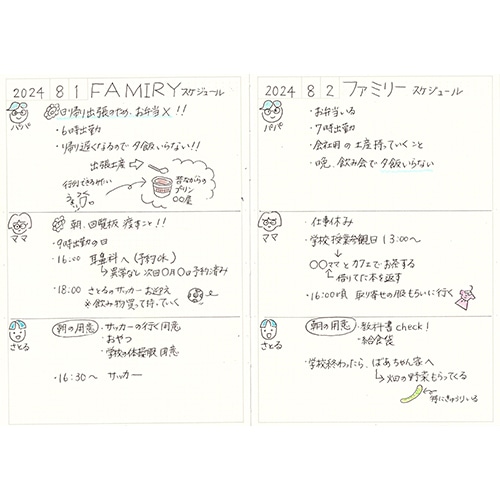 2024 8 1 FAMIRY スケジュール
パパ
日帰り出張のため、お弁当×!!
・6時出勤
・帰り遅くなるので夕飯いらない!!
出張土産
行列できるやつ
昔ながらの
プリン
〇〇屋
ママ
朝、回覧板 渡すこと!!
・9時出勤の日
・16:00 耳鼻科へ(予約OK)
→異常なし 次回〇月〇日予約済み
・18:00 さとるのサッカーお迎え
※飲み物買って持っていく
さとる
朝の用意
・サッカーの行く用意
・おやつ
・学校の体操服 用意
・16:30〜 サッカー
2024 8 2 ファミリー スケジュール
パパ
・お弁当いる
・7時出勤
・会社用の土産持っていくこと
・晩、飲み会で夕飯いらない
ママ
・仕事休み
・学校 授業参観日 13:00〜
〇〇ママとカフェでお茶する
→借りてた本を返す
・16:00頃 取り寄せの服もらいに行く
さとる
朝の用意
・教科書check!
・給食袋
・学校終わったら、ばあちゃん家へ
→畑の野菜もらってくる
特にきゅうりいる